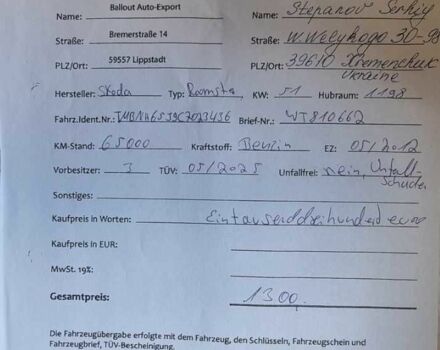 Name: Ballout Auto-Export Name: Stepanov Serhiy
Straße: Bremerstraße 14 Straße: 30-98
PLZ/Ort: 59557 Lippstadt PLZ/Ort: 39610 Kremenchuk
Ukraine
Hersteller: Skoda Typ: Roomster KW: 51 Hubraum: 1198
Fahrz.Ident.Nr.: Brief-Nr.: WT810662
KM-Stand: 65000 Kraftstoff: Benzin EZ: 05/2012
Vorbesitzer: 3 TÜV: 05/2025 Unfallfrei: nein, Unfall-
schaden
Sonstiges:
Kaufpreis in Worten: Eintausenddreihundert euro
Kaufpreis in EUR:
MwSt. 19%:
Gesamtpreis: 1300,
Die Fahrzeugübergabe erfolgte mit dem Fahrzeug, den Schlüsseln, Fahrzeugschein und
Fahrzeugbrief, TÜV-Bescheinigung.